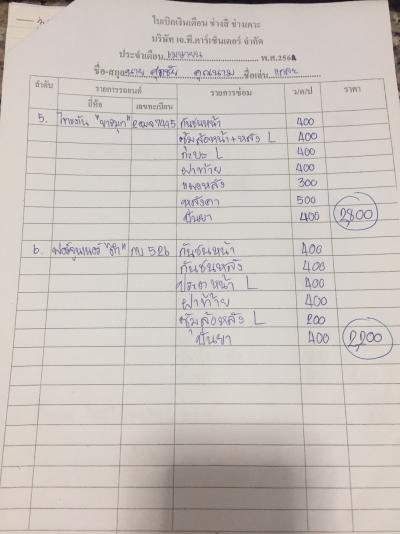 ใบเบิกเงินเดือน ช่างสี ช่างเคาะ
บริษัท เจ.ที.คาร์เซ็นเตอร์ จำกัด
ประจำเดือน เมษายน พ.ศ.256
ชื่อ-สกุล นาย คุณนาม ชื่อเล่น
ลำดับ รายการรถยนต์ รายการซ่อม ว/ด/ป ราคา
ยี่ห้อ เลขทะเบียน
5. 7445 กันชนหน้า 400
ซุ้มล้อหน้า+หลัง L 400
กะบะ L 400
ฝาท้าย 400
แผงหลัง 300
หลังคา 500
ปั่นยา 400 2,800
6. ฟอร์จูนเนอร์ 526 กันชนหน้า 400
กันชนหลัง 400
ประตูหน้า L 400
ฝาท้าย 400
ซุ้มล้อหลัง L 200
ปั่นยา 400 2,200